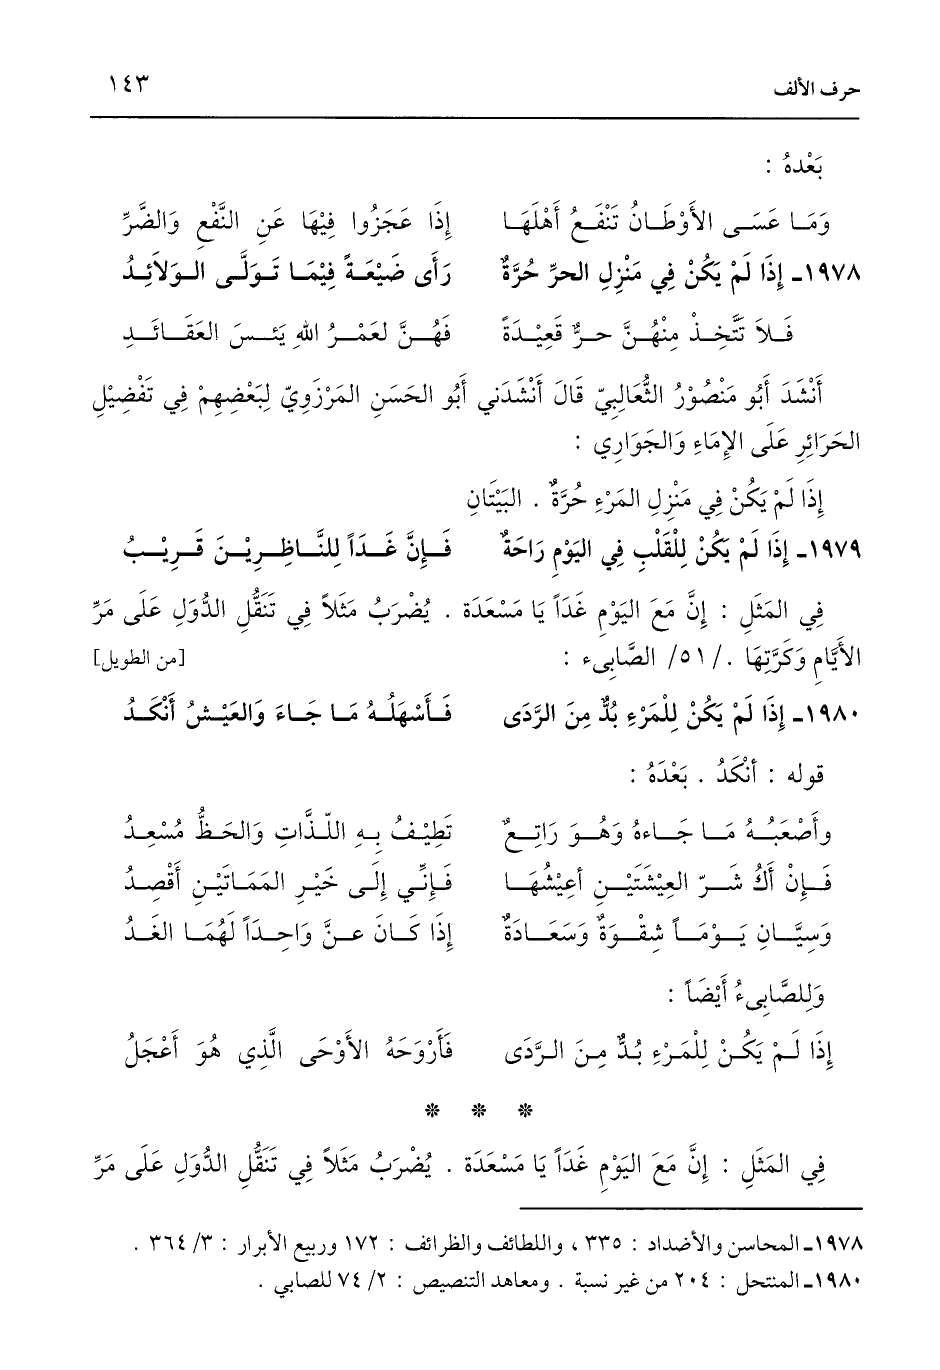 حرف الألف ١٤٣
بَعْدهُ :
وَمَا عَسَى الأَوْطَانُ تَنْفَعُ أَهْلَهَا إِذَا عَجَزُوا فِيْهَا عَنِ النَّفْعِ وَالضَّرِّ
١٩٧٨ـ إِذَا لَمْ يَكُنْ فِي مَنْزِلِ الحرِّ حُرَّةٌ رَأَى ضَيْعَةً فِيْمَا تَوَلَّى الوَلاَئِدُ
فَلاَ تَتَّخِذْ مِنْهُنَّ حرٌّ قَعِيْدَةً فَهُنَّ لعَمْرُ اللهِ بِئسَ العَقَائدِ
أَنْشَدَ أَبُو مَنْصُوْرُ الثُّعَالِبِيّ قَالَ أَنْشَدَني أَبُو الحَسَنِ المَرْزَوِيّ لِبَعْضِهِمْ فِي تَفْضِيْلِ
الحَرَائِرِ عَلَى الإِمَاءِ وَالجَوَارِي :
إِذَا لَمْ يَكُنْ فِي مَنْزِلِ المَرْءِ حُرَّةٌ . البَيْتَانِ
١٩٧٩ـ إِذَا لَمْ يَكُنْ لِلْقَلْبِ فِي اليَوْمِ رَاحَةٌ فَإِنَّ غَداً لِلنَّاظِرِيْنَ قَرِيْبُ
فِي المَثَلِ : إِنَّ مَعَ اليَوْمِ غَدَاً يَا مَسْعَدَة . يُضْرَبُ مَثَلاً فِي تَنَقُّلِ الدُّوَلِ عَلَى مَرِّ
الأَيَّامِ وَكَرَّتِهَا ./ ٥١/ الصَّابِىء : [من الطويل]
١٩٨٠ـ إِذَا لَمْ يَكُنْ لِلْمَرْءِ بُدٌّ مِنَ الرَّدَى فَأَسْهَلُهُ مَا جَاءَ وَالعَيْشُ أَنْكَدُ
قوله : أَنْكَدُ . بَعْدَهُ :
وأَصْعَبُهُ مَا جَاءهُ وَهُوَ رَاتِعٌ تَطِيْفُ بِهِ اللّذَّاتِ وَالحَظُّ مُسْعِدُ
فَإِنْ أَكُ شَرّ العِيْشَتَيْنِ أعِيْشُهَا فَإِنِّي إِلَى خَيْرِ المَمَاتَيْنِ أَقْصِدُ
وَسِيَّانِ يَوْمَاً شِقْوَةٌ وَسَعَادَةٌ إِذَا كَانَ عنَّ وَاحِدَاً لَهُمَا الغَدُ
وَلِلصَّابِىءُ أَيْضَاً :
إِذَا لَمْ يَكُنْ لِلْمَرْءِ بُدٌّ مِنَ الرَّدَى فَأَرْوَحَهُ الأَوْحَى الَّذِي هُوَ أَعْجَلُ
* * *
فِي المَثَلِ : إِنَّ مَعَ اليَوْمِ غَدَاً يَا مَسْعَدَة . يُضْرَبُ مَثَلاً فِي تَنَقُّلِ الدُّوَلِ عَلَى مَرِّ
١٩٧٨ـ المحاسن والأضداد : ٣٣٥ ، واللطائف والظرائف : ١٧٢ وربيع الأبرار : ٣/ ٣٦٤ .
١٩٨٠ـ المنتحل : ٢٠٤ من غير نسبة . ومعاهد التنصيص : ٢/ ٧٤ للصابي .